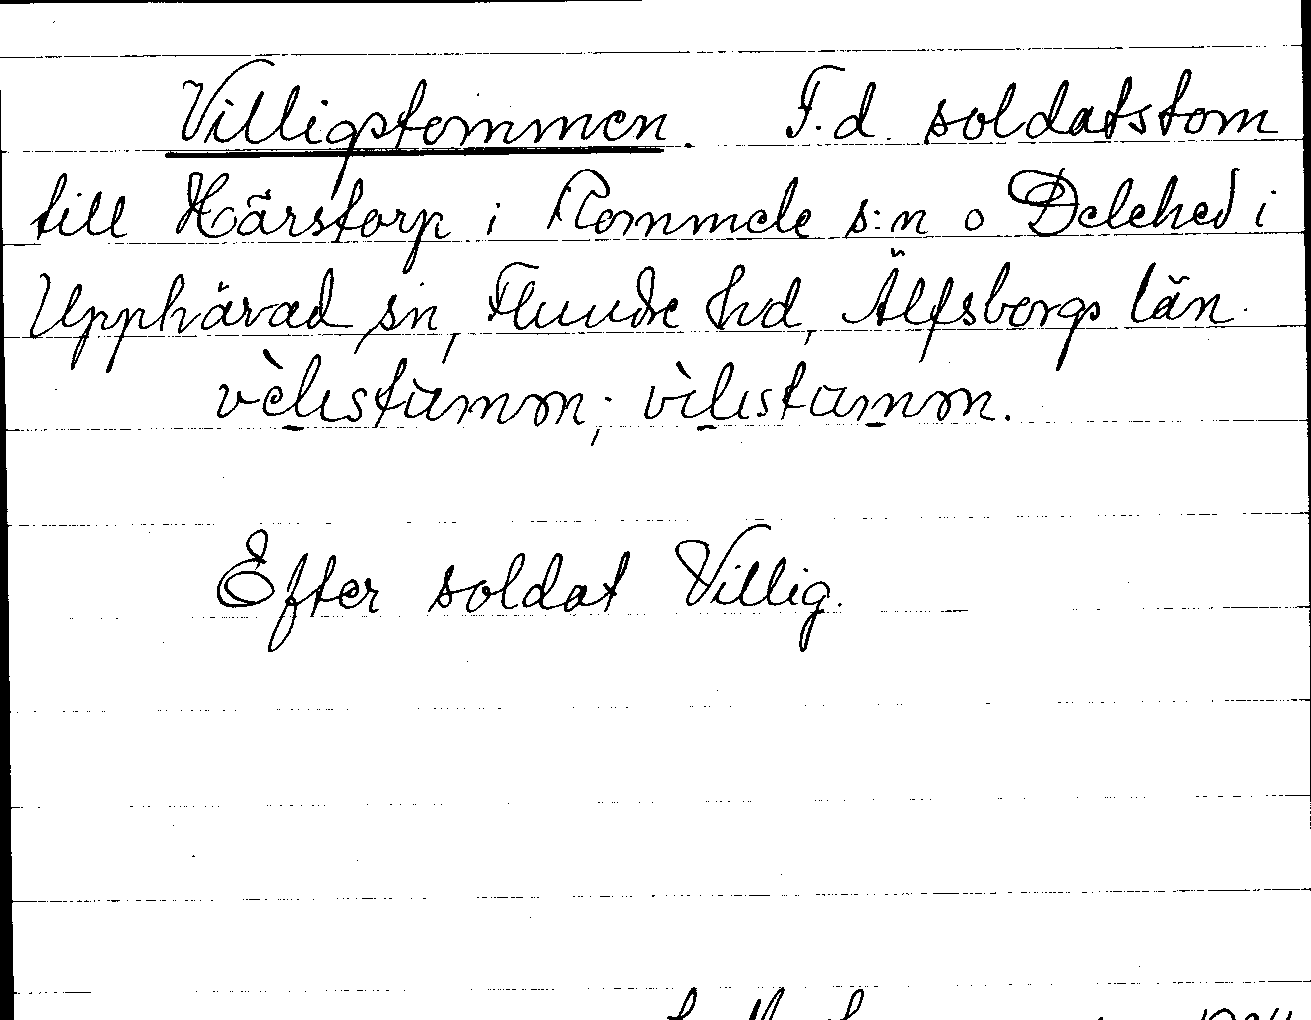 Villigstommen. F.d. soldatstom
till Härstorp i Rommele s:n o Delehed i
Upphärad sn, Flundre hd, Älfsborgs län.
Efter soldat Villig.